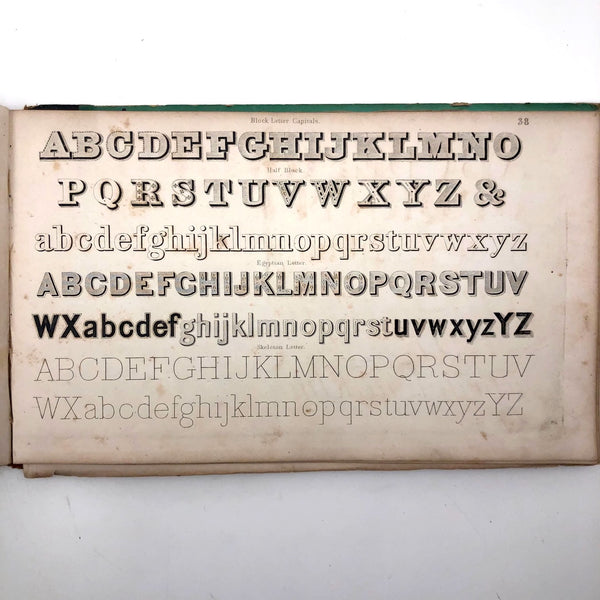 Block Letter Capitals. 38
ABCDEFGHIJKLMNO
Half Block.
PQRSTUVWXYZ &
abcdefghijklmnopqrstuvwxyz
Egyptian Letter.
ABCDEFGHIJKLMNOPQRSTUV
WXabcdefghijklmnopqrstuvwxyzYZ
Skeleton Letter.
ABCDEFGHIJKLMNOPQRSTUV
WXabcdefghijklmnopqrstuvwxyzYZ